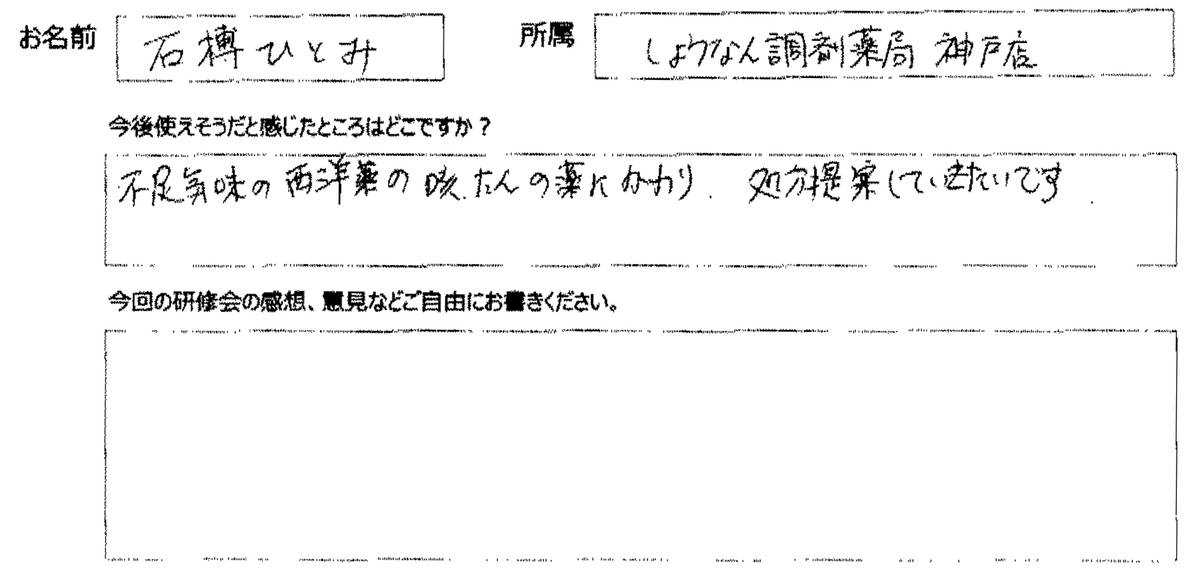 お名前 石榑ひとみ 所属 しょうなん調剤薬局 神戸店
今後使えそうだと感じたところはどこですか？
不足気味の西洋薬の咳.たんの薬にかわり. 処方提案していきたいです.
今回の研修会の感想、意見などご自由にお書きください。